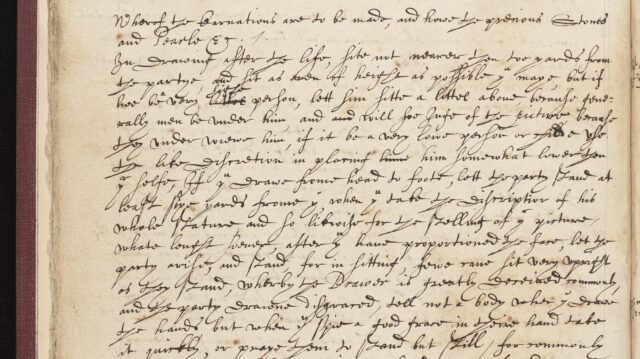 Wherof the Carnations are to be made, and howe the precious Stones
and Pearle &c.
In Draweing after the life, site not nearer then too yards from
the partye and sit as even of height as possible yu maye but if
hee be very person, lett him sitte a littel above because gene-
rally men be under him and and will soe Juge of the picture, because
they under viewe him, if it be a very lowe person or use
the like discretion in placing him somewhat lower then
yr selfe. If yu drawe frome head to foote, lett the party stand at
least sixe yards frome yu when yu take the discription of his
whole stature, and so likwise for the stelling of yr picture,
whate lenght soever, after yu have proportioned the face, let the
party arise, and stand, for in sitting, fewe cane sit very upright
as they stand, wherby the Drawer is greatly deceived commonly,
and the party drawne disgraced, tell not a body when yu drawe
the hands but when yu spie a good grace in theire hand take
it quickly, or praye them to stand but still, for commonly